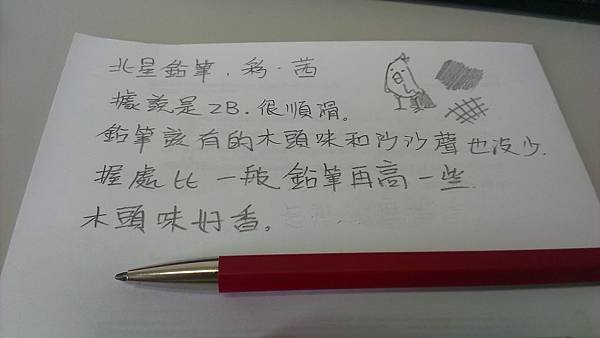 北星鉛筆．彩．茜
據說是2B．很順滑。
鉛筆該有的木頭味和沙沙聲也沒少．
握處比一般鉛筆再高一些
木頭味好香。